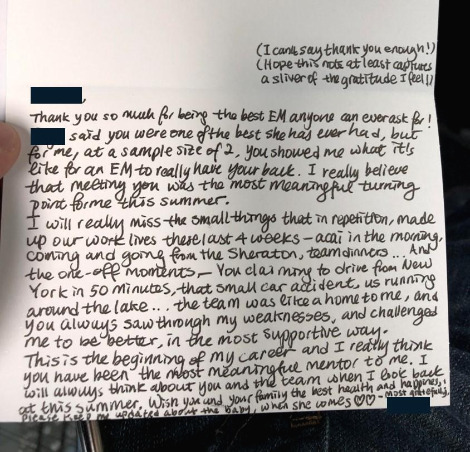 (I can't say thank you enough!)
(Hope this note at least captures
a sliver of the gratitude I feel!)
,
Thank you so much for being the best EM anyone can ever ask for!
said you were one of the best she has ever had, but
for me, at a sample size of 2, you showed me what it's
like for an EM to really have your back. I really believe
that meeting you was the most meaningful turning
point for me this summer.
I will really miss the small things that in repetition, made
up our work lives these last 4 weeks - acai in the morning,
coming and going from the Sheraton, team dinners... And
the one-off moments - You claiming to drive from New
York in 50 minutes, that small car accident, us running
around the lake... the team was like a home to me, and
you always saw through my weaknesses, and challenged
me to be better, in the most supportive way.
This is the beginning of my career and I really think
you have been the most meaningful mentor to me. I
will always think about you and the team when I look back
at this summer. Wish you and your family the best health and happiness,
Please keep me updated about the baby, when she comes ♡♡ - most gratefully,